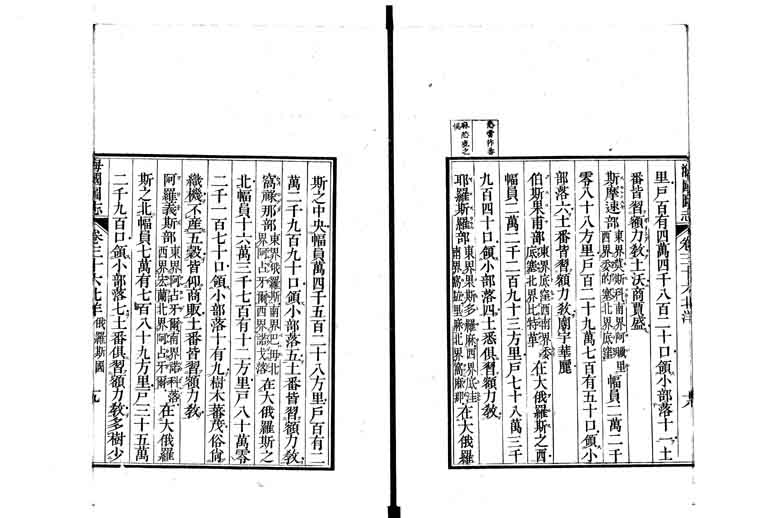 里戶百有四萬四千八百二十口領小部落十一土
番皆習額力敎土沃商賈盛
斯摩速部東界莫斯科南界阿 里西界委的塞北界底窪幅員二萬二千
零八十八方里戶百二十九萬七百有五十口領小
部落六土番皆習額力敎廟宇華麗
伯斯果甫部東界底窪西南界委底塞北界比特革在大俄羅斯之西
幅員二萬二千一百九十三方里戶七十八萬三千
九百四十口領小部落四土悉俱習額力敎
耶羅斯羅部東界果斯多羅麻西界底洼南界 里麻北界窩 在大俄羅
海國圖志
卷三十六北洋
悉當作番
斯之中央幅員萬四千五百二十八方里戶百有二
萬二千九百九十口領小部落五土番皆習額力敎
窩祿那部東界俄羅斯南界巴毋北界阿占牙爾西界諾戈落在大俄羅斯之
北幅員十六萬三千七百有十二方里戶八十萬零
二千一百七十口領小部落十有九樹木蕃茂俗尙
織機不產五穀皆仰商販土番皆習額力敎
阿羅義斯部東界阿占牙爾南界諾科落西界宏蘭北界阿占牙爾在大俄羅
斯之北幅員七萬有七百八十九方里戶三十五萬
二千九百口領小部落七土番俱習額力敎多樹少
海國圖志
卷三十六北洋
俄羅斯國